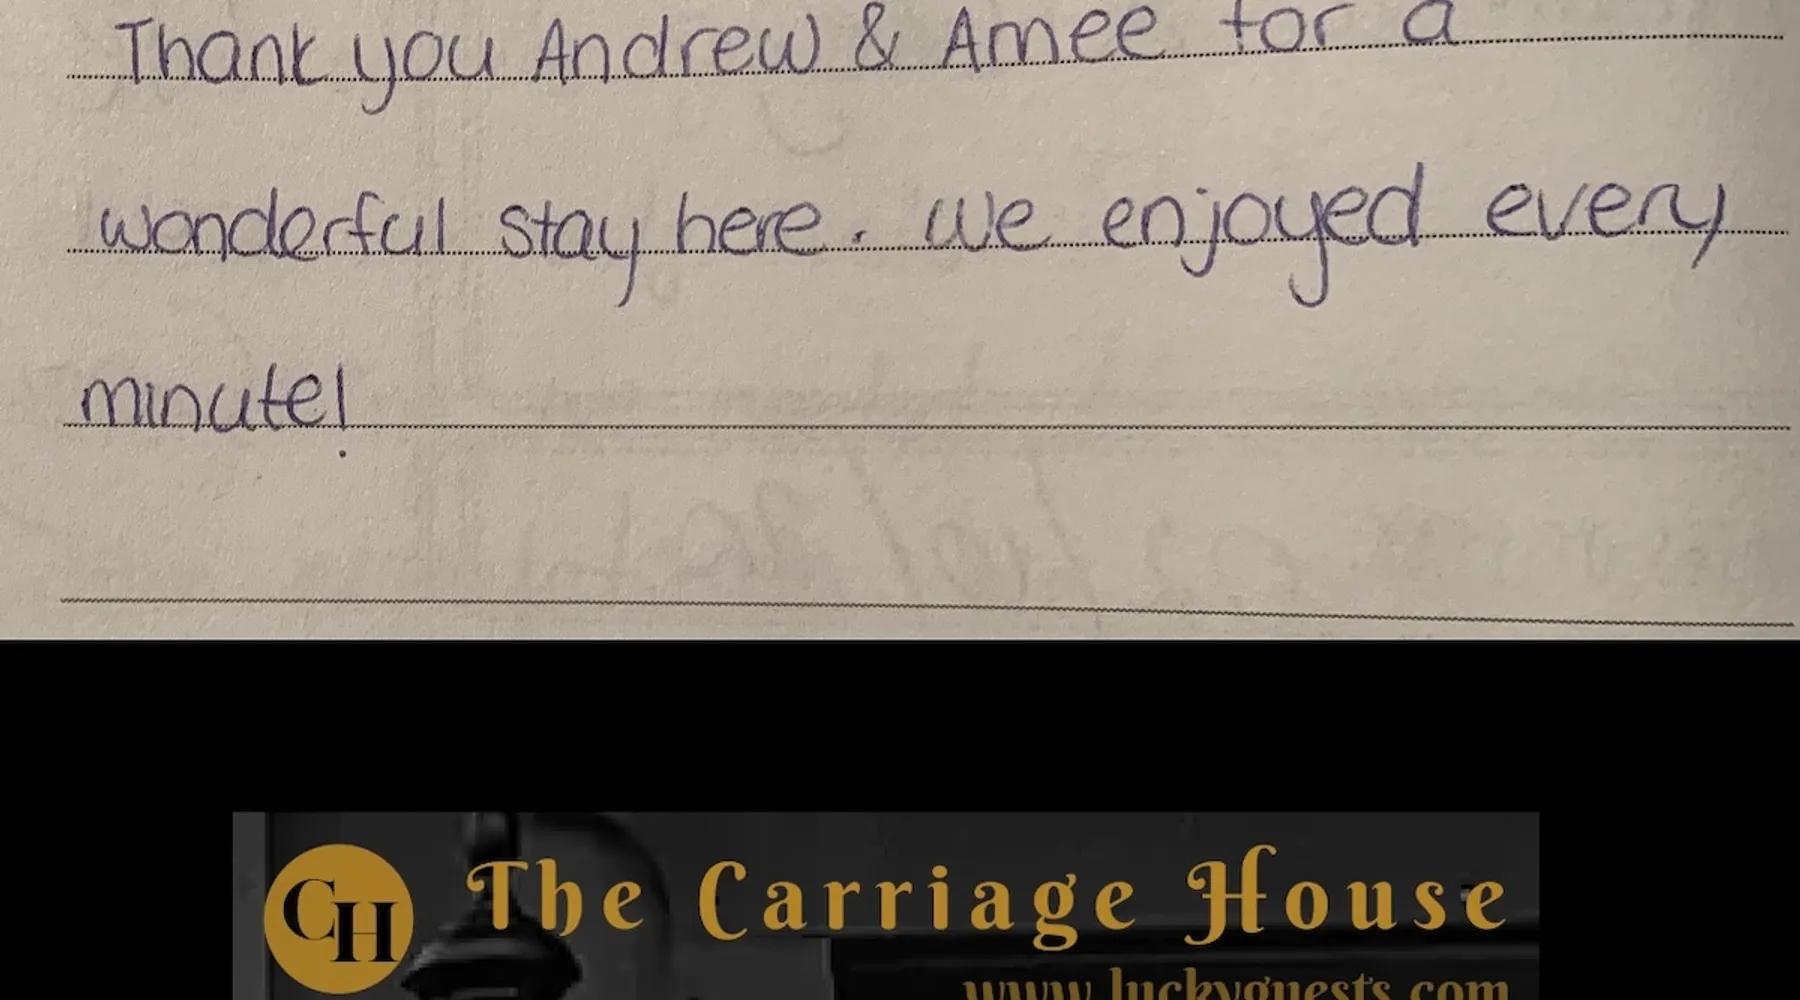 Thank you Andrew & Amee for a
wonderful stay here. We enjoyed every
minute!
CH
The Carriage House
www.luckyguests.com